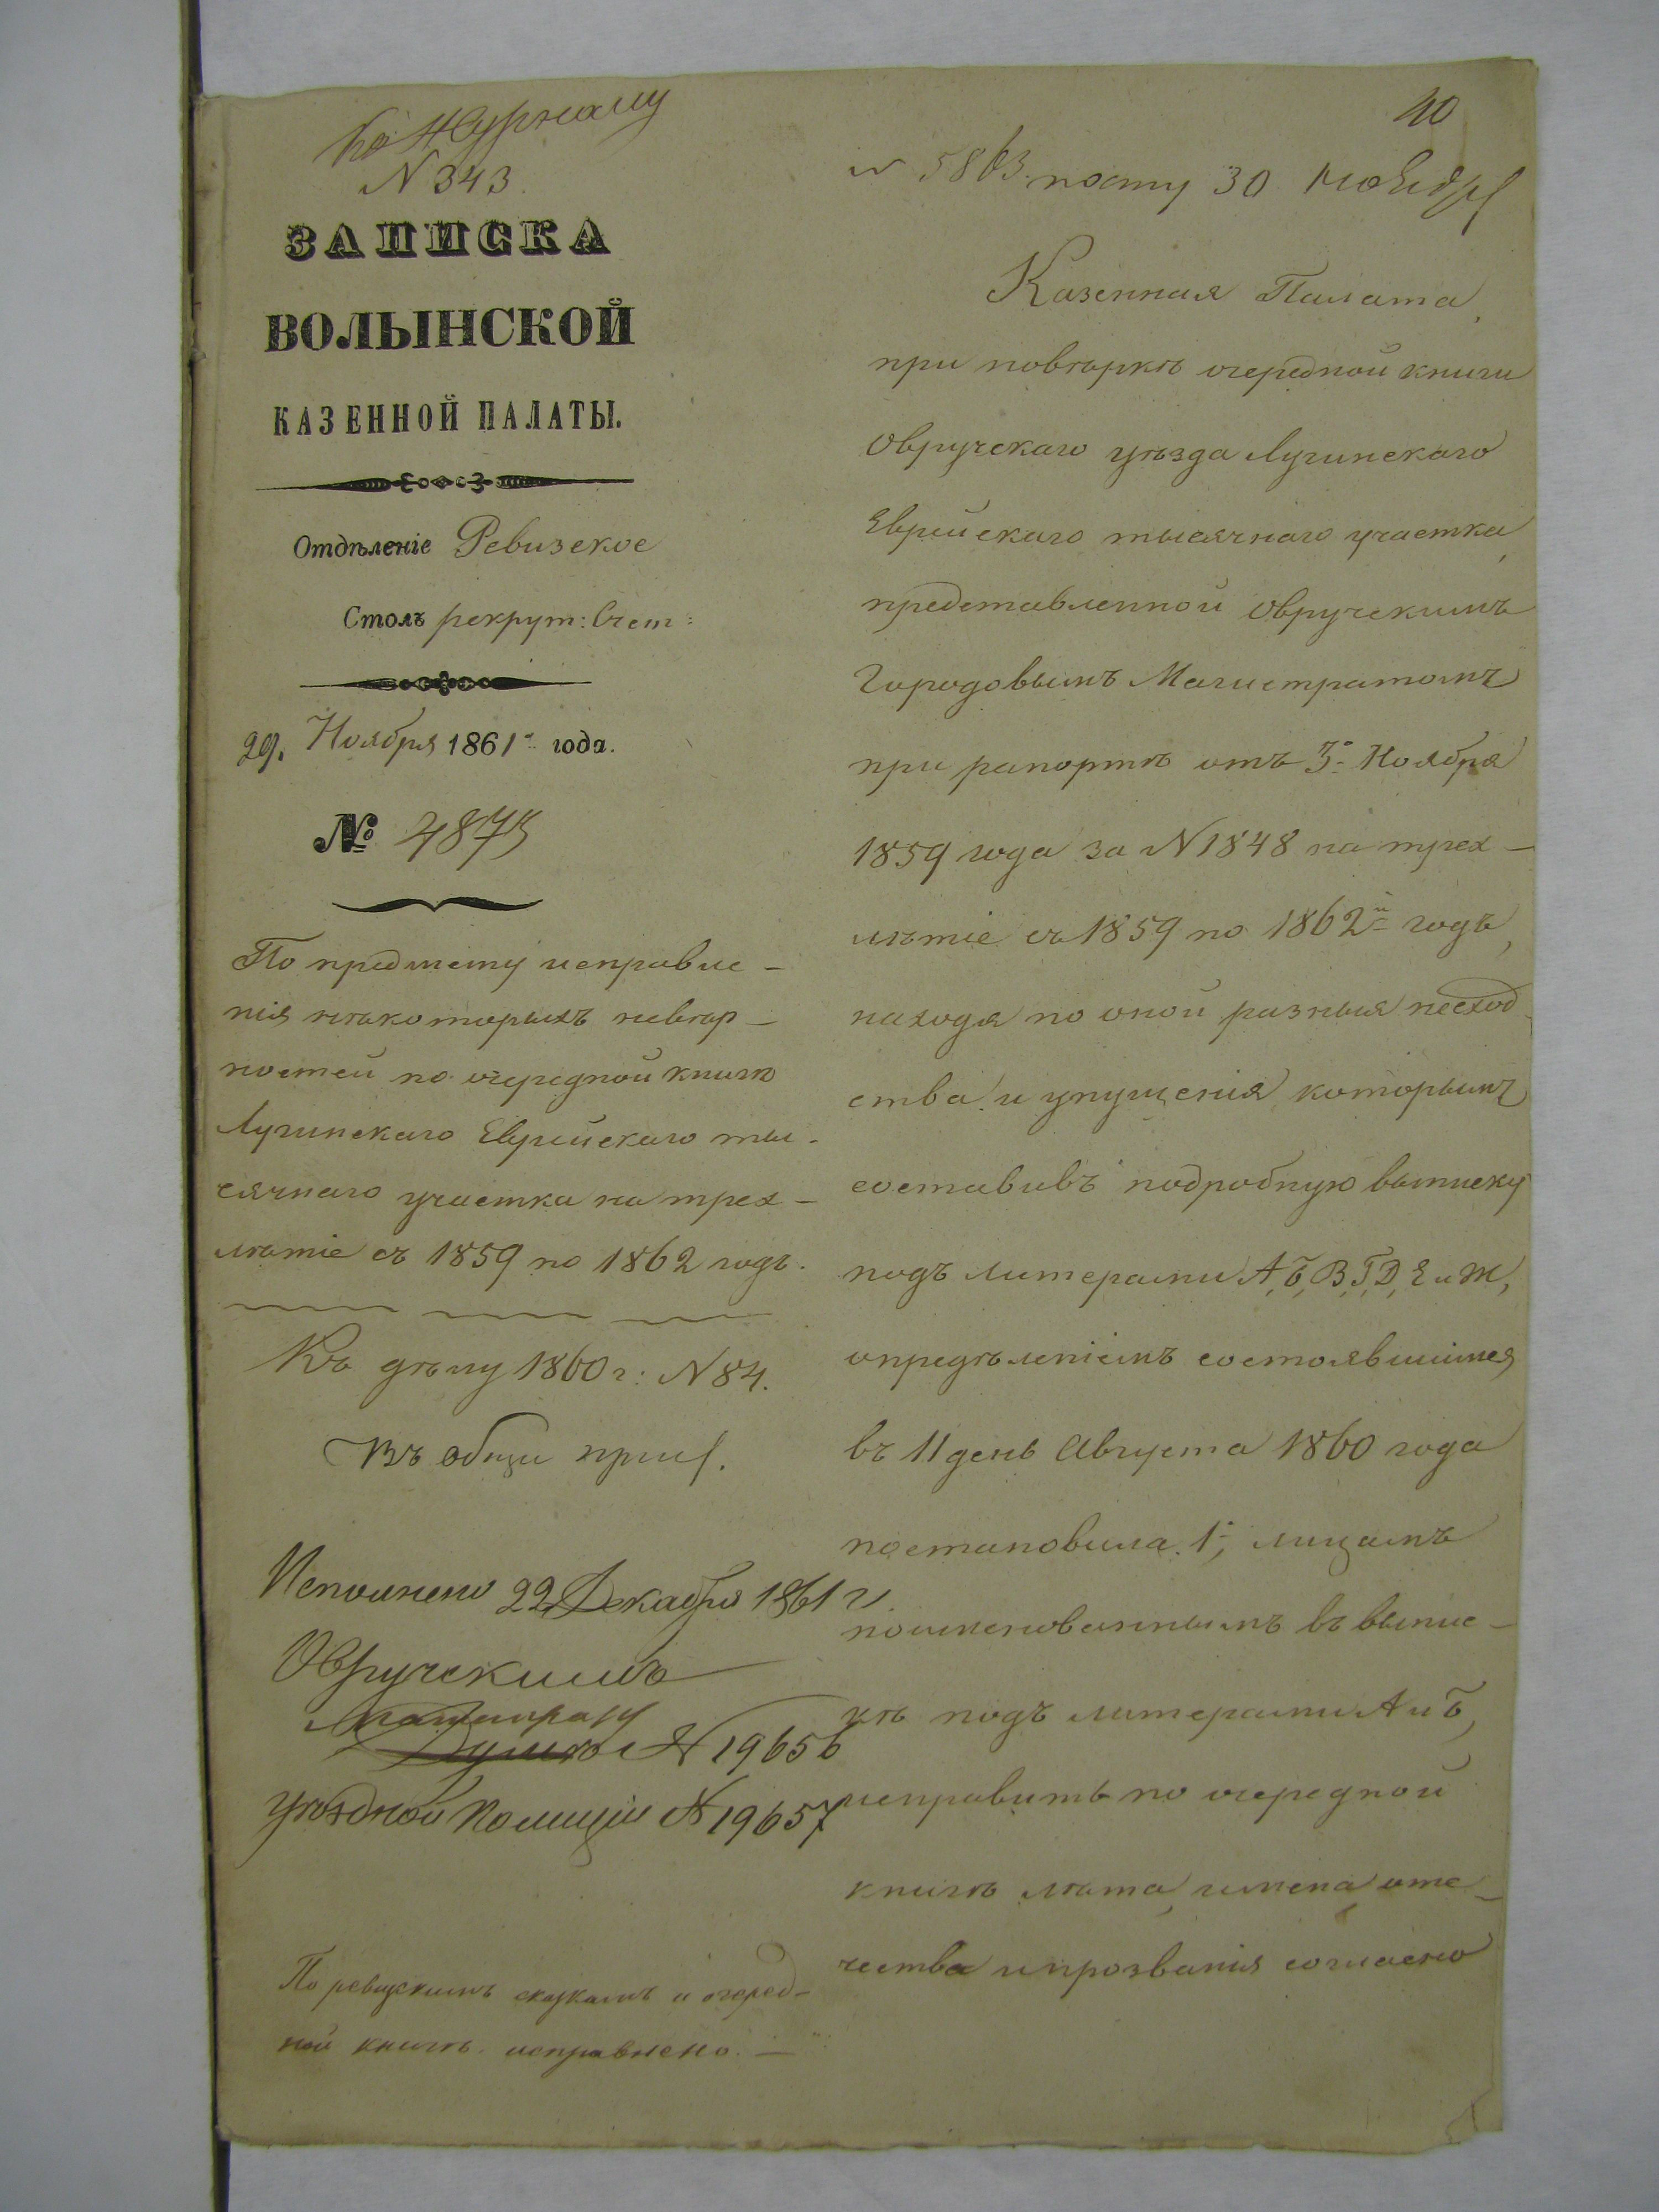 По Журналу
N 343.
ЗАПИСКА
ВОЛЫНСКОЙ
КАЗЕННОЙ ПАЛАТЫ.
Отдѣленіе Ревизское
Столъ рекрут: Счет:
29. Ноября 1861 года.
№ 4875
По предмету исправле-
нія нѣкоторыхъ невѣр-
ностей по очередной книгѣ
Лугинскаго Еврейскаго ты-
сячнаго участка на трех-
лѣтіе съ 1859 по 1862 годъ.
Къ дѣлу 1860 г: N 84.
Въ общ
Исполнено 22 Декабря 1861 г.
Овручскимъ
Магистрату
Думѣ N 19656
уѣздной Полиціи N 19657
По ревизскимъ сказкамъ и очеред-
ной книгѣ исправлено. —
40
N 5863. 30 Ноября
Казенная Палата,
при повѣркѣ очередной книги
Овручскаго уѣзда Лугинскаго
Еврейскаго тысячнаго участка,
представленной Овручскимъ
Городовымъ Магистратомъ
при рапортѣ отъ 3 Ноября
1859 года за N 1848 на трех-
лѣтіе съ 1859 по 1862й годъ,
находя по оной разныя несход-
ства и упущенія, которымъ
составивъ подробную выписку
подъ литерами А, Б, В, Г, Д, Е и Ж,
опредѣленіемъ состоявшимся
въ 11 день Августа 1860 года
постановила: 1, лицамъ
поименованнымъ въ выпис-
кѣ подъ литерами А и Б,
исправить по очередной
книгѣ лѣта, имена, оте-
чества и прозванія согласно